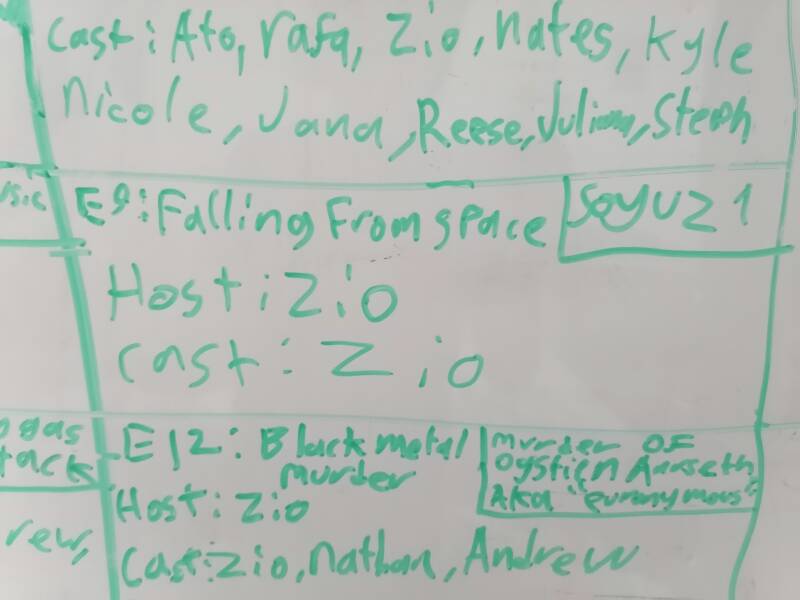 Cast: Ato, rafa, Zio, nates, Kyle
nicole, Jana, Reese, Julian, Steph
usic
E9: Falling From space
Soyuz 1
Host: Zio
Cast: Zio
gas
tack
E12: Black metal
murder
murder OF
Oystien Aarseth
AKA "euronymous"
Host: Zio
rew,
Cast: Zio, nathan, Andrew